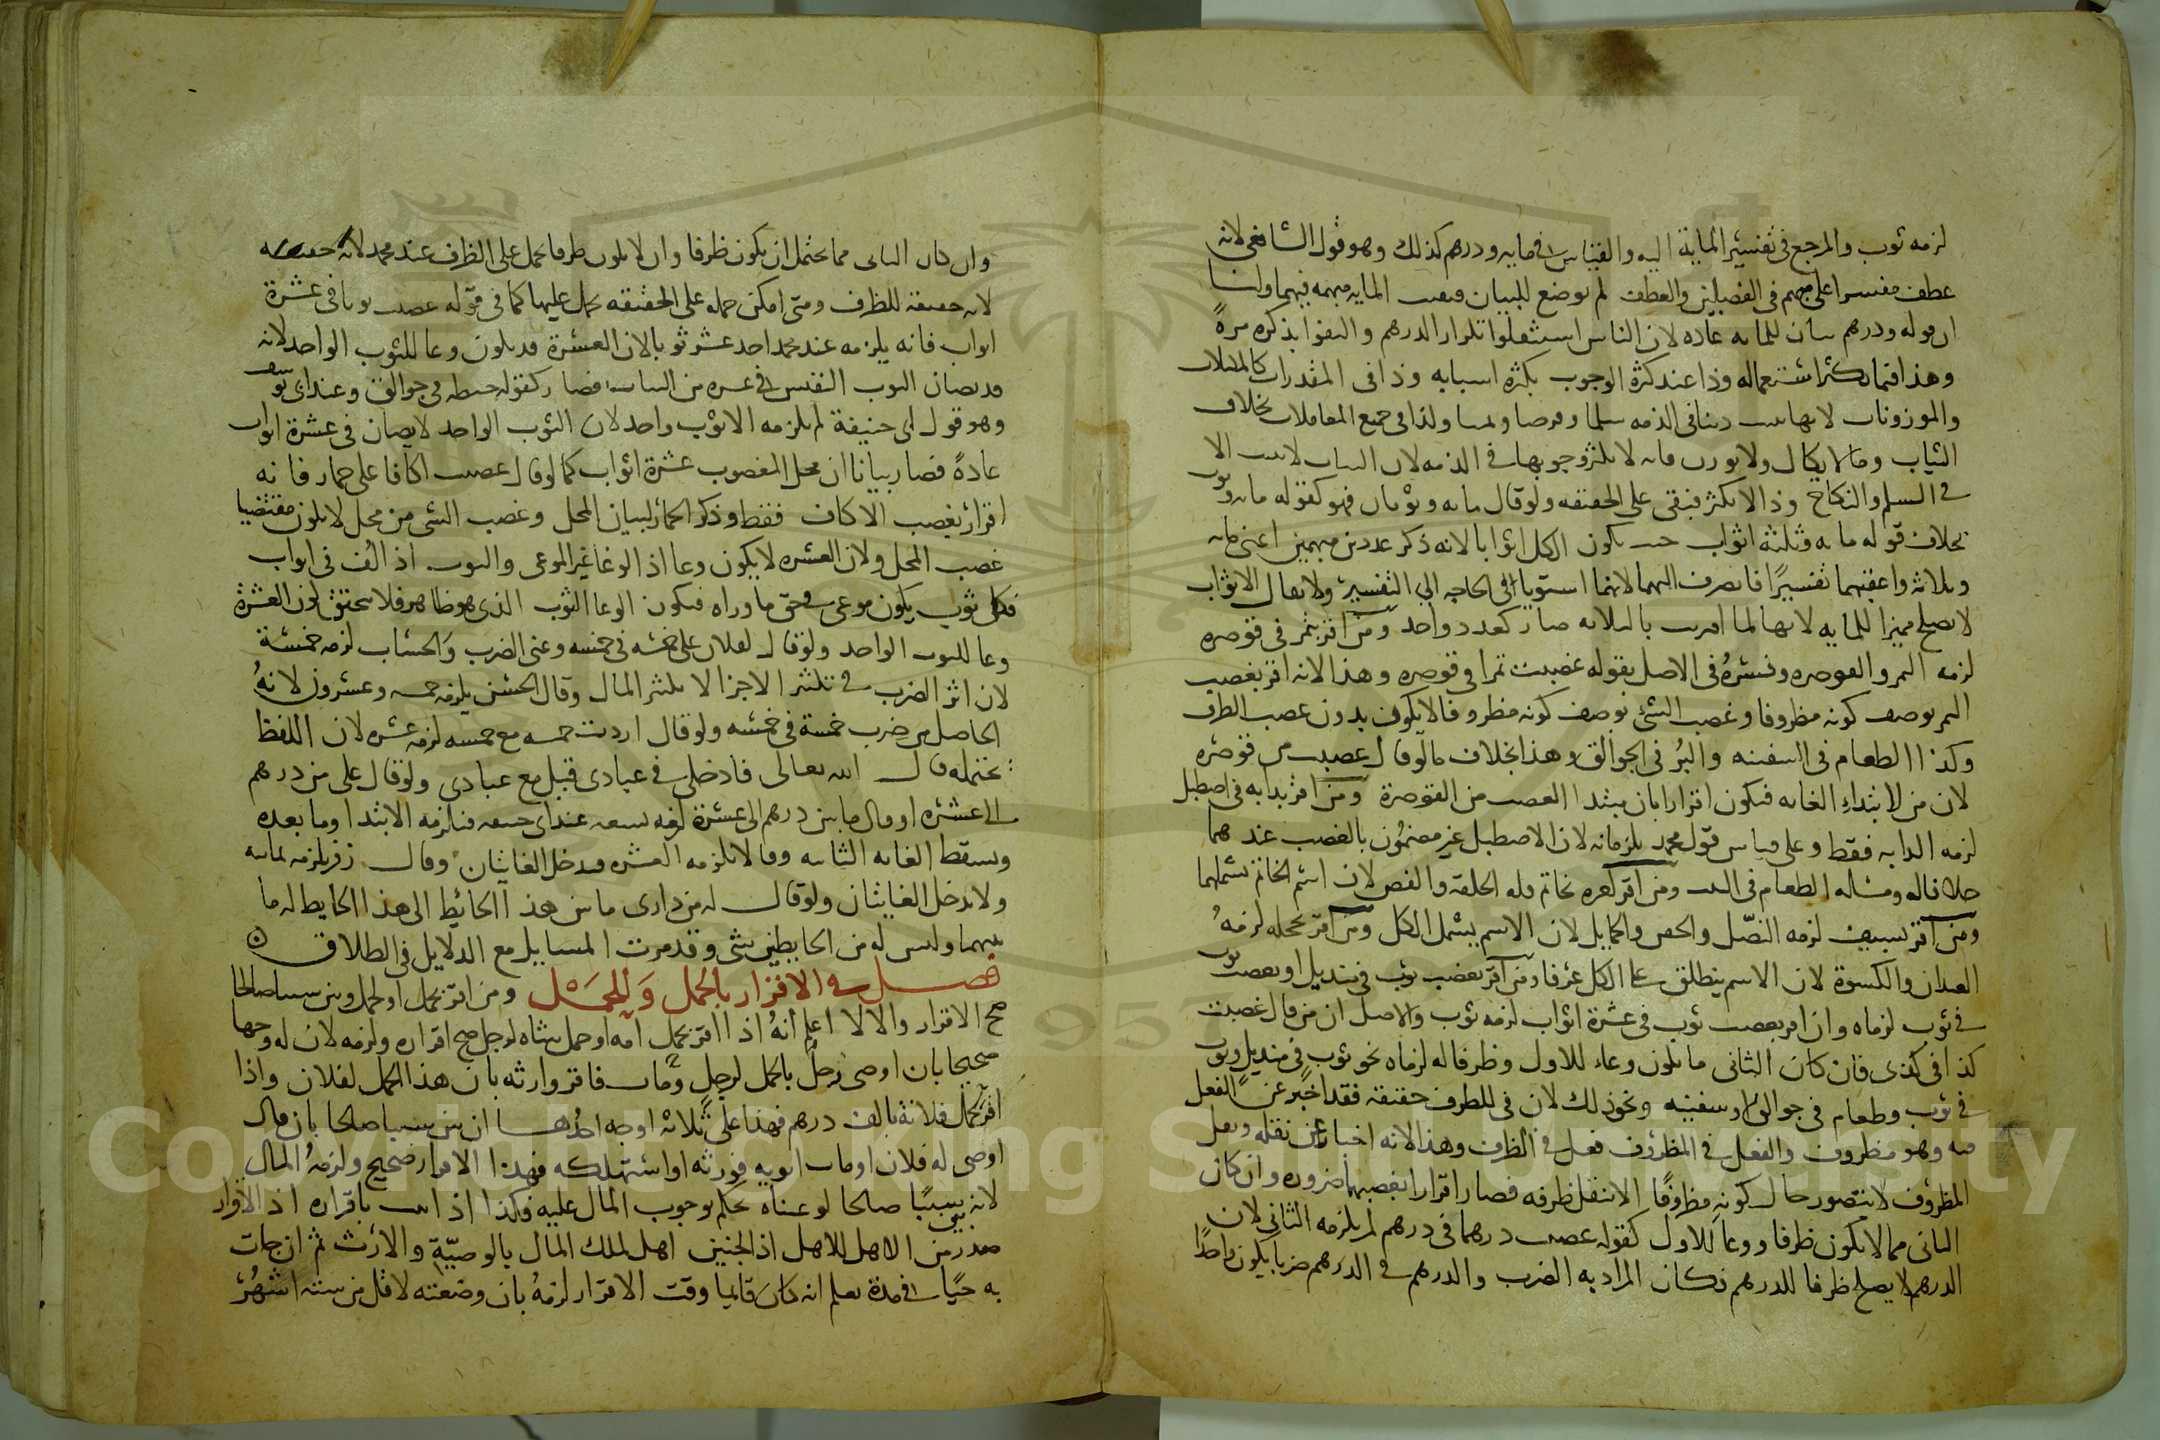 لزمه ثوب والمرجع في تفسير الماية اليه والقياس في مايه ودرهم كذلك وهو قول الشافعي لانه
عطف مفسرا على مبهم في الفصلين والعطف لم يوضع للبيان فبقيت المايه مبهمه فيهما ولنا
ان قوله ودرهم بيان للمايه عادة لان الناس استثقلوا تكرار الدرهم واكتفوا بذكره مرةً
وهذا فيما يكثر استعماله وذا عند كثرة الوجوب بكثرة اسبابه وذا في المقدرات كالمكيلات
والموزونات لانها تثبت دينا في الذمه سلما وقرضا وثمنا ولذا في جميع المعاملات بخلاف
الثياب وما لا يكال ولا يوزن فانه لا يكثر وجوبها في الذمه لان الثياب لا تثبت الا
في السلم والنكاح وذا لا يكثر فبقي على الحقيقه ولو قال مايه وثوبان فهو كقوله مايه وثوب
بخلاف قوله مايه وثلثة اثواب حيث يكون الكل اثوابا لانه ذكر عددين مبهمين اعني مايه
وثلاثه واعقبهما تفسيرًا فانصرف اليهما لانهما استويا في الحاجه الي التفسير ولا يقال الاثواب
لا يصلح مميزا للمايه لانها لما اقترنت بالثلاثه صارا كعدد واحد ومن اقر بتمر في قوصره
لزمه التمر والقوصره وفسره في الاصل بقوله غصبت تمرا في قوصره وهذا لانه اقر بغصب
التمر بوصف كونه مظروفا وغصب الشي بوصف كونه مظروفا لا يكون بدون غصب الظرف
وكذا الطعام في السفينه والبر في الجوالق وهذا بخلاف ما لو قال غصبت من قوصره
لان من لابتداء الغايه فيكون اقرارا بان مبتدا الغصب من القوصرة ومن اقر بدابه في اصطبل
لزمه الدابه فقط وعلى قياس قول محمد يلزمانه لان الاصطبل غير مضمون بالغصب عندهما
خلافا له ومثله الطعام في البيت ومن اقر لغيره بخاتم فله الحلقه والفص لان اسم الخاتم يشملهما
ومن اقر بسيف لزمه النصل والجفن والحمايل لان الاسم يشمل الكل ومن اقر بحجله لزمه
العيدان والكسوة لان الاسم ينطلق على الكل عرفا ومن اقر بغصب ثوب في منديل او بغصب ثوب
في ثوب لزماه وان اقر بغصب ثوب في عشرة اثواب لزمه ثوب والاصل ان من قال غصبت
كذا في كذى فان كان الثاني ما يكون وعاء للاول وظرفا له لزماه نحو ثوب في منديل وثوب
في ثوب وطعام في جوالق او سفينه ونحو ذلك لان في للظرف حقيقه فقد اخبر عن الفعل
فيه وهو مظروف والفعل في المظروف فعل في الظرف وهذا لانه اخبار عن نقله ونقل
المظروف لا يتصور حال كونه مظروفًا الا بنقل ظرفه فصار اقرارا بغصبهما ضروره وان كان
الثاني مما لا يكون ظرفا ووعا للاول كقوله غصبت درهما في درهم لم يلزمه الثاني لان
الدرهم لا يصلح ظرفا للدرهم فكان المراد به الضرب والدرهم في الدرهم ضربا يكون واحدًا
وان كان الثاني مما يحتمل ان يكون ظرفا وان لا يكون ظرفا يحمل على الظرف عند محمد
لانه حقيقة للظرف ومتى امكن حمله على الحقيقه حمل عليها كما في قوله غصبت ثوبا في عشرة
اثواب فانه يلزمه عند محمد احد عشر ثوبا لان العشرة قد يكون وعا للثوب الواحد لانه
قد يصان الثوب النفيس في عشره من الثياب فصار كقوله حنطه في جوالق وعند ابي يوسف
وهو قول ابي حنيفة لم يلزمه الا ثوب واحد لان الثوب الواحد لا يصان في عشرة اثواب
عادةً فصار بيانا ان محل المغصوب عشرة اثواب كما لو قال غصبت اكافا على حمار فانه
اقرار بغصب الاكاف فقط وذكر الحمار لبيان المحل وغصب الشي من محل لا يكون مقتضيا
غصب المحل ولان العشره لا يكون وعا اذ الوعا غير الموعى والثوب اذا لف في اثواب
فكل ثوب يكون موعى في حق ما وراه فيكون الوعا الثوب الذي هو ظاهر فلا يتحقق كون العشرة
وعا للثوب الواحد ولو قال لفلان على خمسه في خمسه وعنى الضرب والحساب لزمه خمسة
لان اثر الضرب في تكثير الاجزا لا بتكثير المال وقال الحسن يلزمه خمسه وعشرون لانه
الحاصل من ضرب خمسة في خمسه ولو قال اردت خمسه مع خمسه لزمه عشره لان اللفظ
يحتمله قال الله تعالى فادخلي في عبادي قيل مع عبادي ولو قال على من درهم
الى عشره او قال ما بين درهم الى عشرة لزمه تسعه عند ابي حنيفه فيلزمه الابتدا وما بعده
ويسقط الغايه الثانيه وقالا يلزمه العشره فيدخل الغايتان وقال زفر يلزمه ثمانيه
ولا يدخل الغايتان ولو قال له من داري ما بين هذا الحائط الى هذا الحايط له ما
بينهما وليس له من الحايطين شي وقد مرت المسايل مع الدلايل في الطلاق
فصل في الاقرار بالحمل وللحمل ومن اقر بحمل او لحمل وبين سببا صالحا
صح الاقرار والا لا اعلم انه اذا اقر بحمل امه او حمل شاه لرجل صح اقراره ولزمه لان له وجها
صحيحا بان اوصى رجل بالحمل لرجل ومات فاقر وارثه بان هذا الحمل لفلان واذا
اقر لحمل فلانة بالف درهم فهذا على ثلاثة اوجه احدها ان بين سببا صالحا بان قال
اوصى له فلان او مات ابويه فورثه او استهلكه فهذا الاقرار صحيح ولزمه المال
لانه بين سببًا صالحا لو عيناه يحكم بوجوب المال عليه فكذا اذا ثبت باقراره اذ الاقرار
صدر من الاهل للاهل اذ الجنين اهل لملك المال بالوصيّة والارث ثم ان جات
به حيًا في مدة يعلم انه كان قايما وقت الاقرار لزمه بان وضعته لاقل من ستة اشهر
Copyright © King Saud University
1957